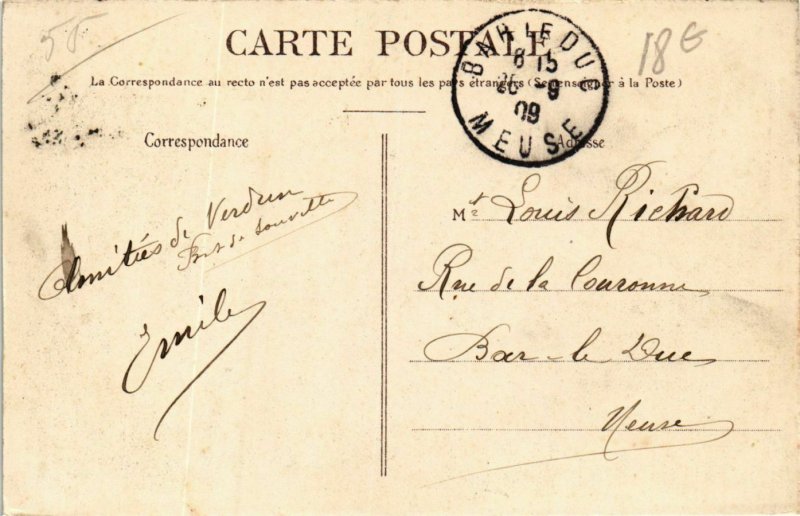 55
18 €
CARTE POSTALE
La Correspondance au recto n'est pas acceptée par tous les pays étrangers (Se renseigner à la Poste)
BAR LE DUC
8 15
-9
09
MEUSE
Correspondance
Amitiés de Verdun
Fort de Souville
Emile
Adresse
Mr Louis Richard
Rue de la Couronne
Bar-le Duc
Meuse